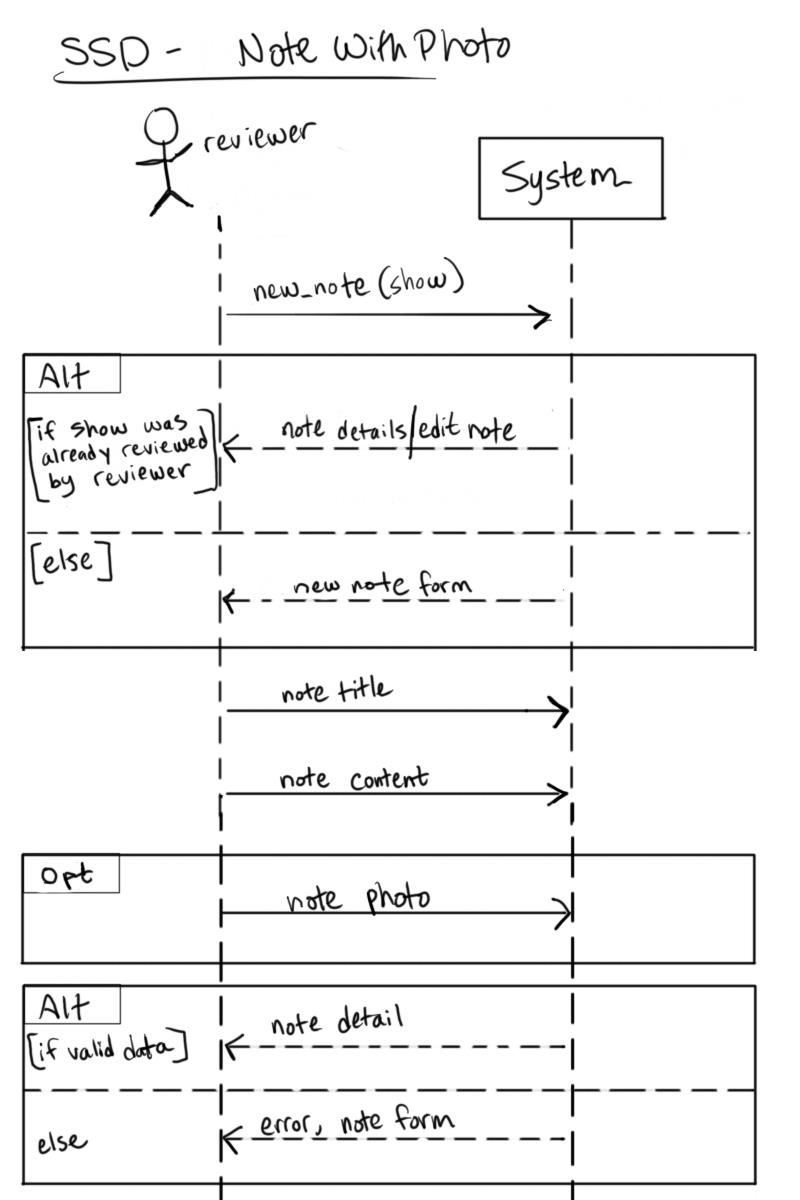 SSD - Note With Photo
reviewer
System
new_note (show)
Alt
[if show was
already reviewed
by reviewer]
note details/edit note
[else]
new note form
note title
note content
Opt
note photo
Alt
note detail
[if valid data]
error, note form
else